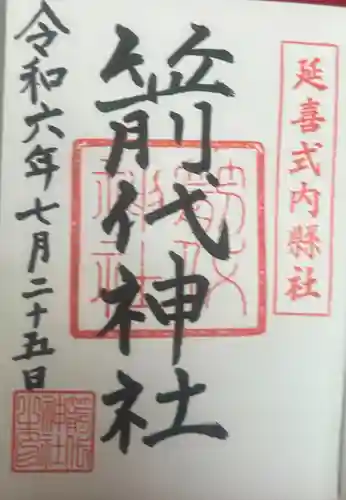 延喜式内縣社
箭代神社
令和六年七月二十五日